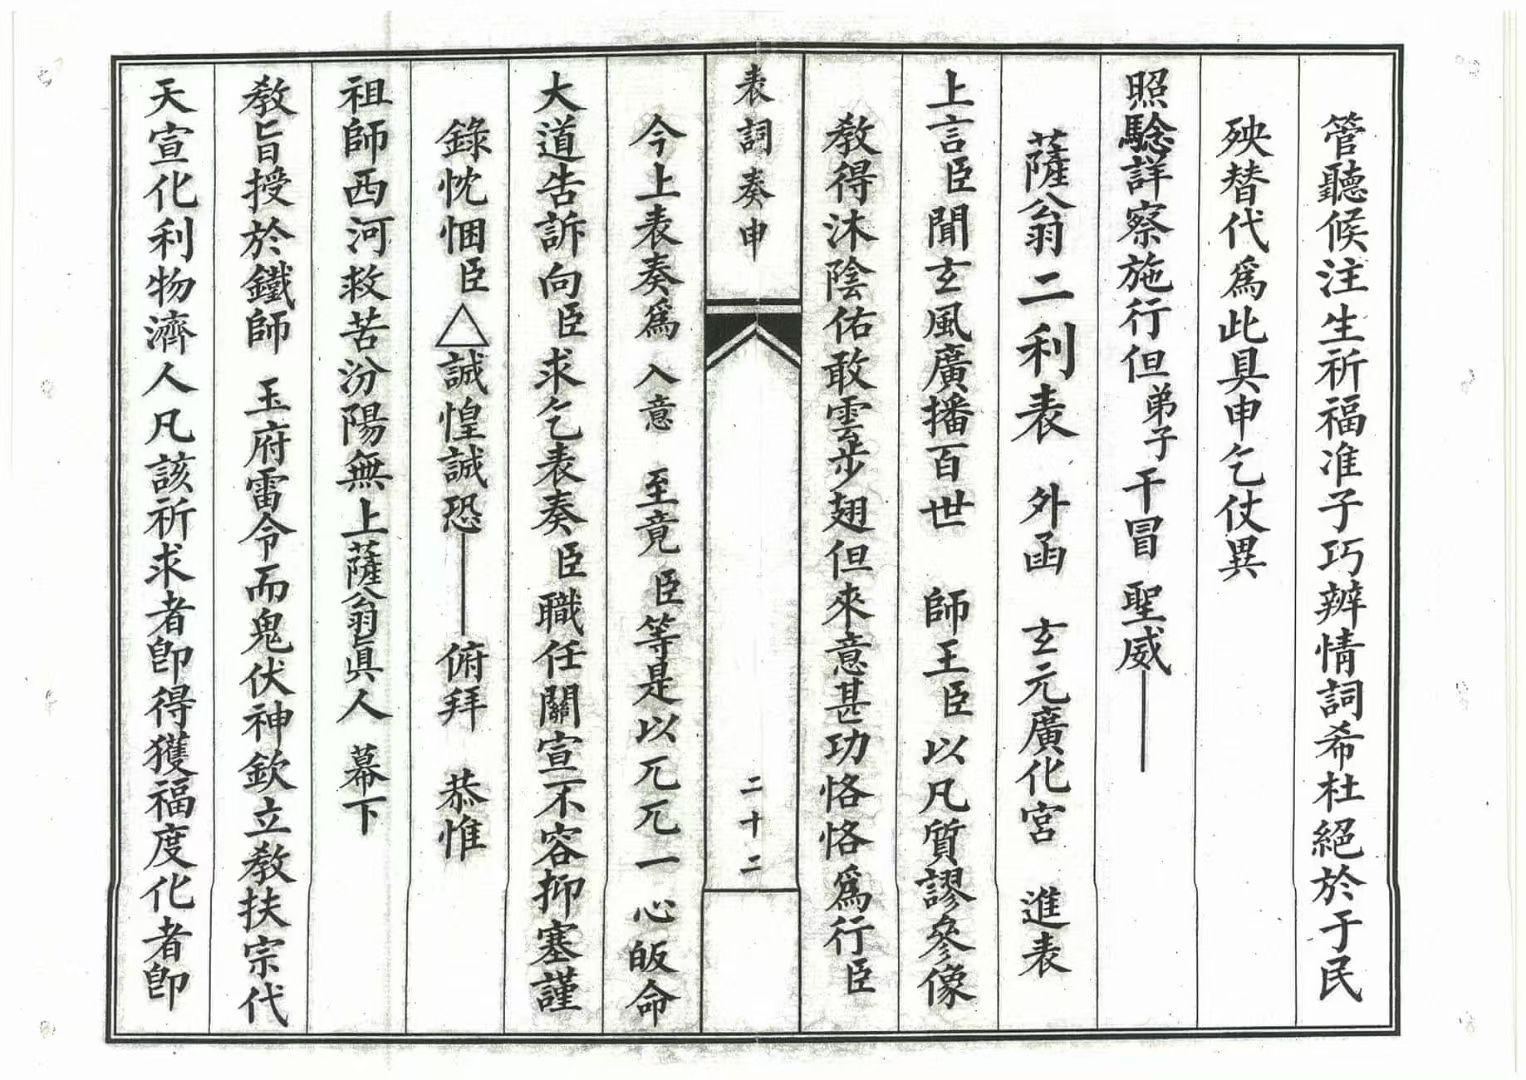 管聽候注生祈福准子巧辨情詞希杜絕於于民
殃替代爲此具申乞仗異
照騐詳察施行但弟子干冒 聖威——
薩翁二利表 外函 玄元廣化宮 進表
上言臣聞玄風廣播百世 師王臣以凡質謬參像
教得沐陰佑敢雲步翅但來意甚功恪恪爲行臣
表詞奏申 二十二
今上表奏爲 入意 至竟 臣等是以兀兀一心皈命
大道告訴向臣求乞表奏臣職任關宣不容抑塞謹
錄忱悃臣△誠惶誠恐——俯拜 恭惟
祖師西河救苦汾陽無上薩翁眞人 幕下
教旨授於鐵師 玉府雷令而鬼伏神欽立教扶宗代
天宣化利物濟人凡該祈求者卽得獲福度化者卽